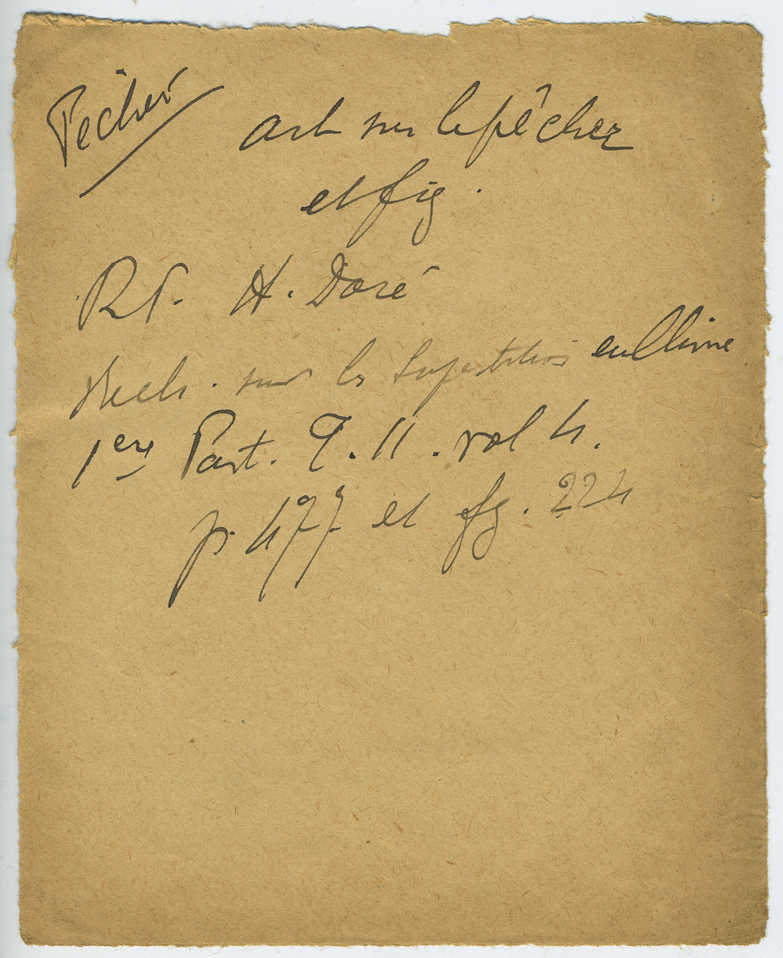 Pêcher
art sur le pêcher
et fig.
R.P. H. Doré
Rech. sur les Superstitions en Chine
1ère Part. T. II. vol 4.
p. 477 et fg. 224